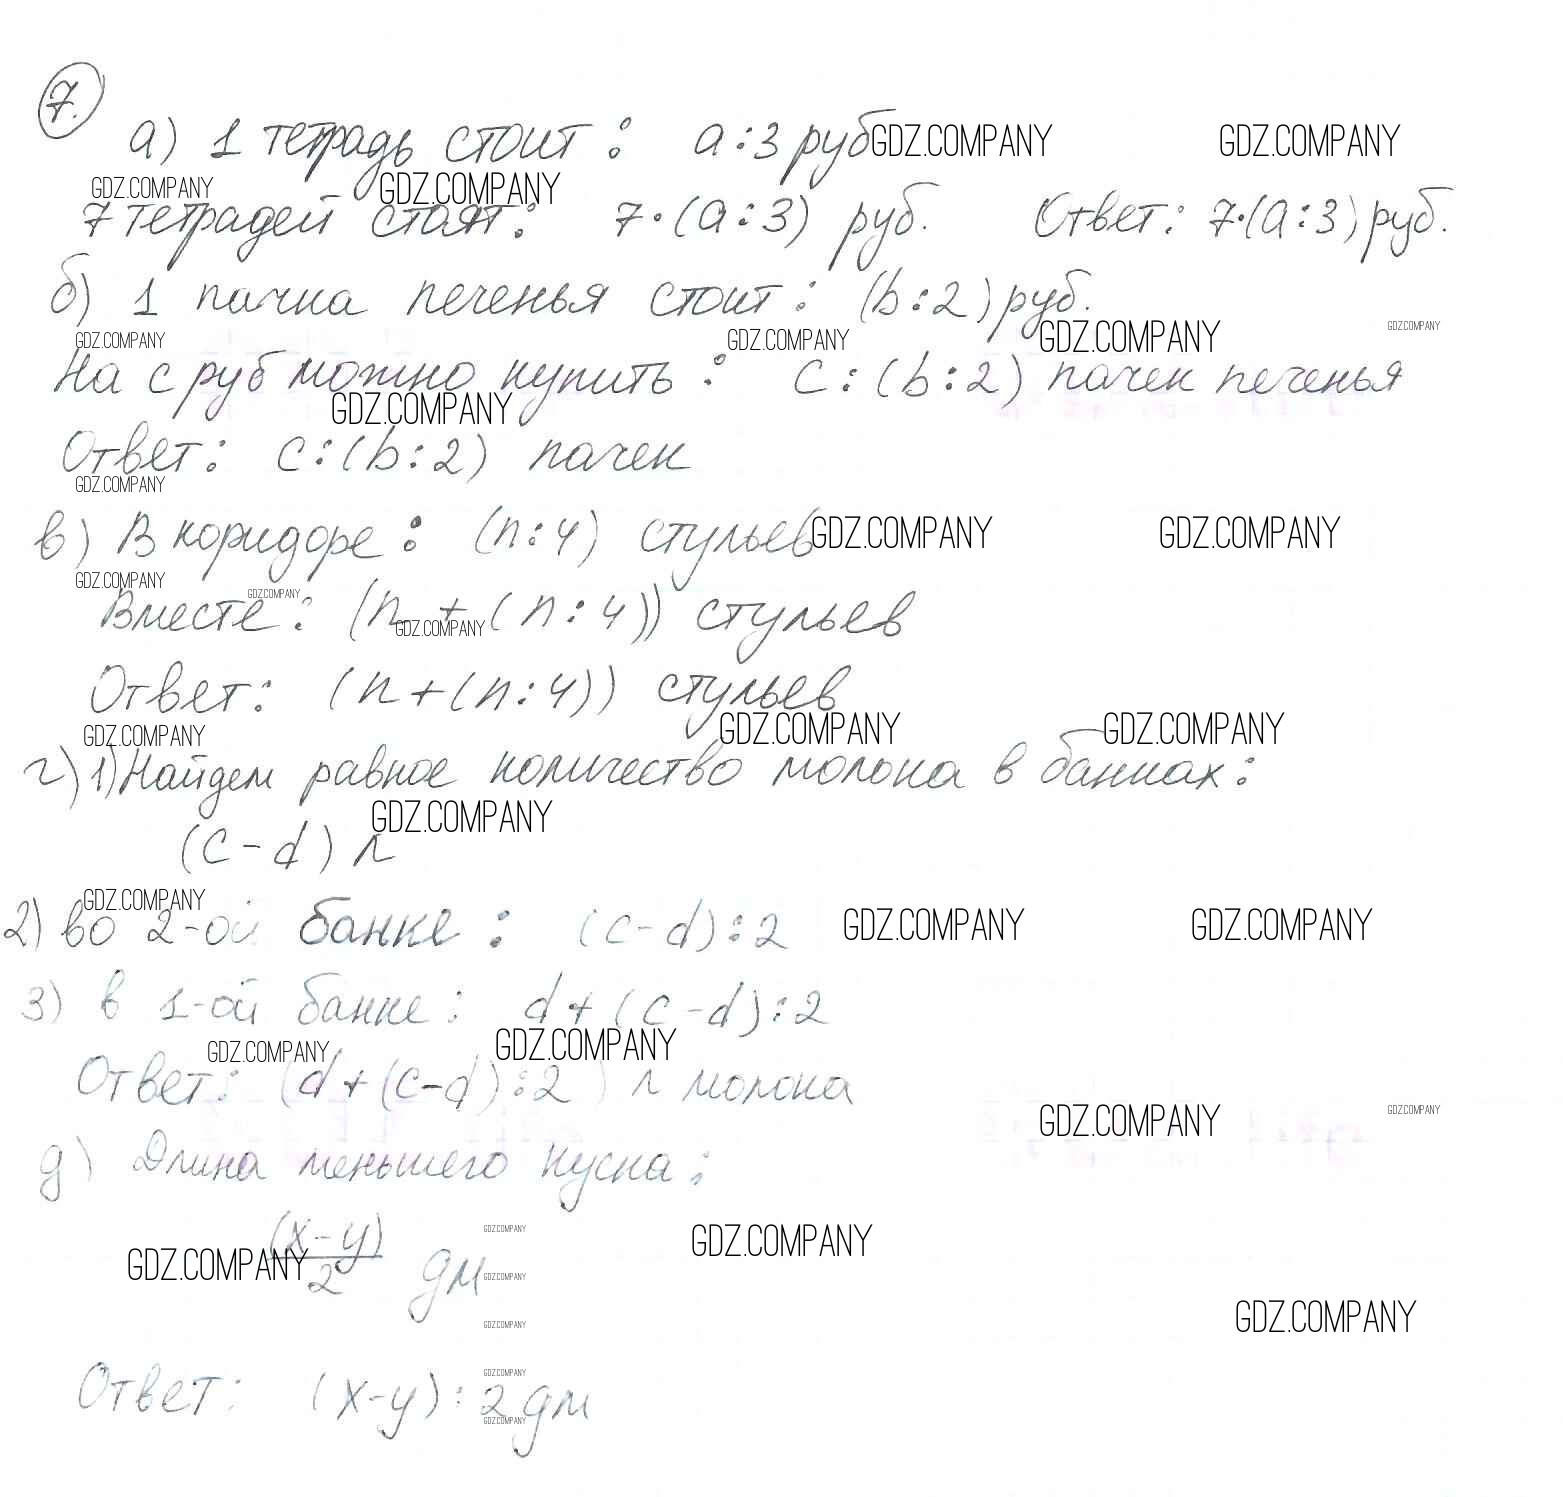 7.
а) 1 тетрадь стоит: a:3 руб GDZ.COMPANY GDZ.COMPANY
GDZ.COMPANY GDZ.COMPANY
7 тетрадей стоят: 7·(a:3) руб. Ответ: 7·(a:3) руб.
б) 1 пачка печенья стоит: (b:2) руб.
GDZ.COMPANY GDZ.COMPANY GDZ.COMPANY GDZ.COMPANY
На c руб можно купить: c:(b:2) пачек печенья
GDZ.COMPANY
Ответ: c:(b:2) пачек
GDZ.COMPANY
в) В коридоре: (n:4) стульев GDZ.COMPANY GDZ.COMPANY
GDZ.COMPANY GDZ.COMPANY
Вместе: (n+(n:4)) стульев
GDZ.COMPANY
Ответ: (n+(n:4)) стульев
GDZ.COMPANY GDZ.COMPANY GDZ.COMPANY
г) 1) Найдем равное количество молока в банках:
GDZ.COMPANY
(c-d) л
GDZ.COMPANY
2) во 2-ой банке: (c-d):2 GDZ.COMPANY GDZ.COMPANY
3) в 1-ой банке: d+(c-d):2
GDZ.COMPANY GDZ.COMPANY
Ответ: (d+(c-d):2) л молока
GDZ.COMPANY GDZ.COMPANY
д) Длина меньшего куска:
(x-y)
GDZ.COMPANY GDZ.COMPANY
GDZ.COMPANY
2 дм GDZ.COMPANY
GDZ.COMPANY
GDZ.COMPANY
GDZ.COMPANY
Ответ: (x-y):2 дм
GDZ.COMPANY